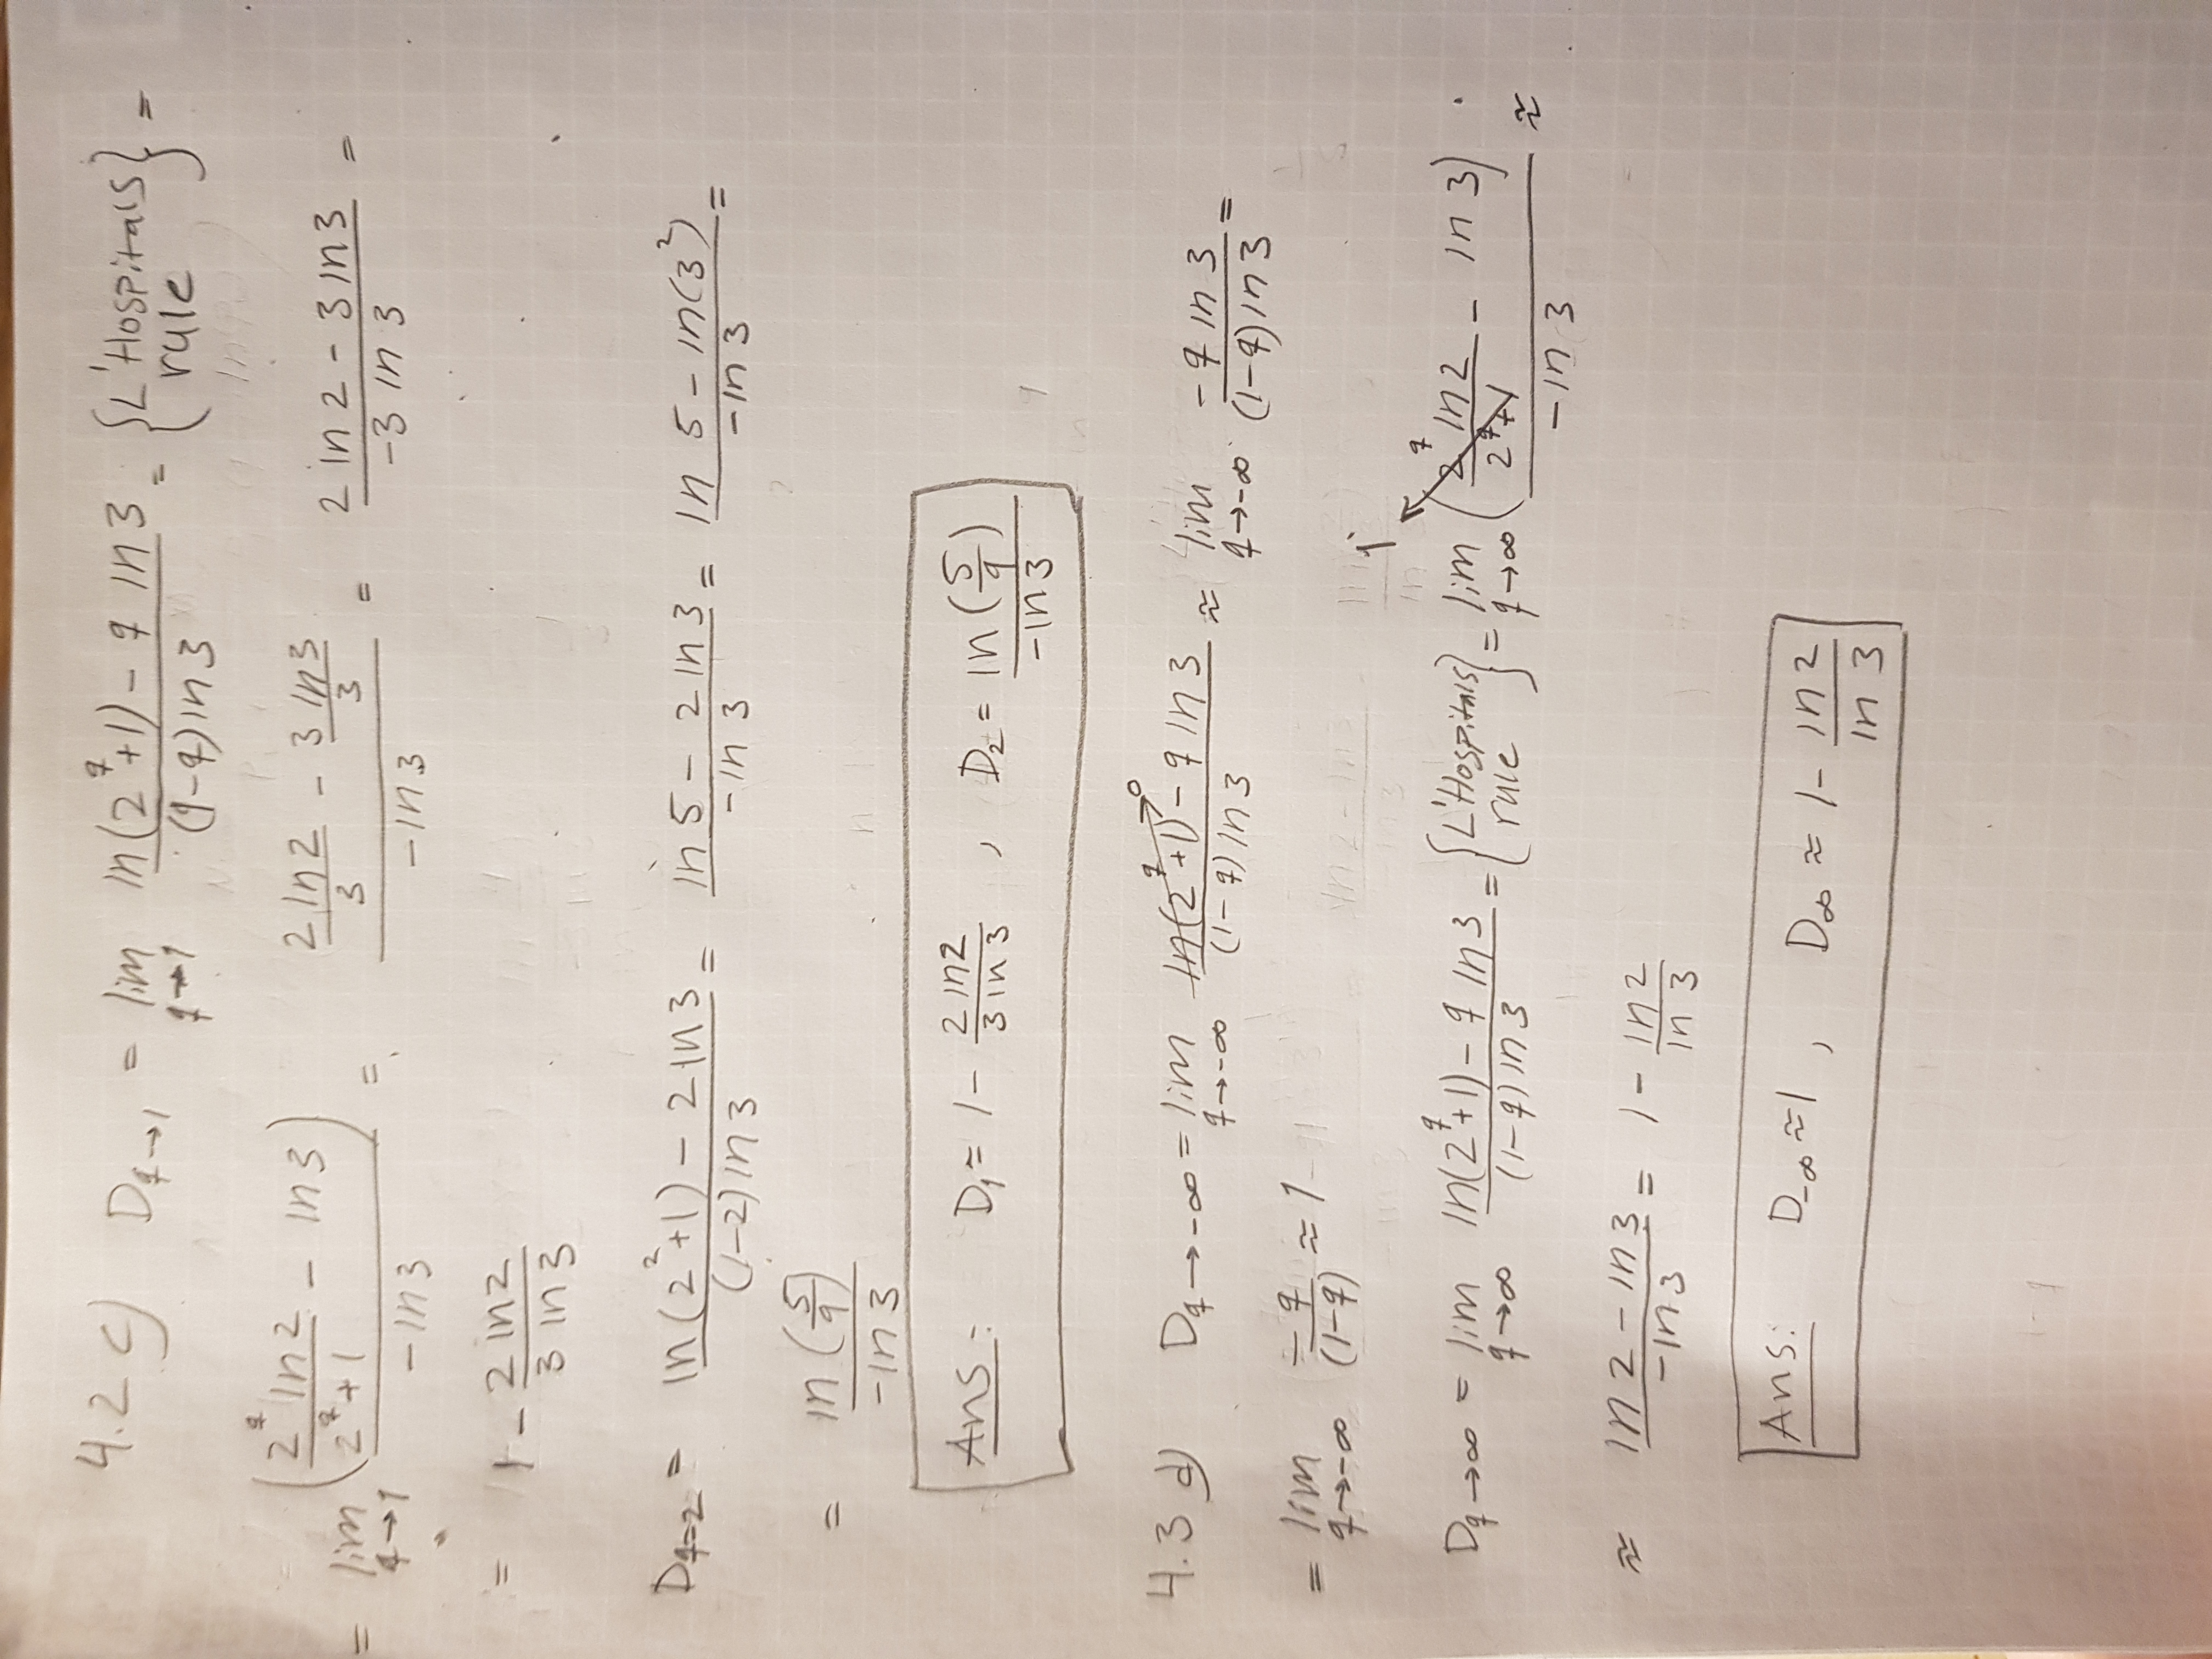 4.2 c) D_{q→1} = lim_{q→1} (ln(2^q+1) - q ln 3)/((1-q) ln 3) = {L'Hospitals rule} =
= lim_{q→1} ((2^q ln 2)/(2^q+1) - ln 3)/(-ln 3) = ((2 ln 2)/3 - (3 ln 3)/3)/(-ln 3) = (2 ln 2 - 3 ln 3)/(-3 ln 3) =
= 1 - (2 ln 2)/(3 ln 3)
D_{q=2} = (ln(2^2+1) - 2 ln 3)/((1-2) ln 3) = (ln 5 - 2 ln 3)/(-ln 3) = (ln 5 - ln(3^2))/(-ln 3) =
= ln(5/9)/(-ln 3)
Ans: D_1 = 1 - (2 ln 2)/(3 ln 3) , D_2 = ln(5/9)/(-ln 3)
4.3 d) D_{q→-∞} = lim_{q→-∞} (ln(2^q+1)→0 - q ln 3)/((1-q) ln 3) ≈ lim_{q→-∞} (-q ln 3)/((1-q) ln 3) =
= lim_{q→-∞} (-q)/((1-q)) ≈ 1
D_{q→∞} = lim_{q→∞} (ln(2^q+1) - q ln 3)/((1-q) ln 3) = {L'Hospitals rule} = lim_{q→∞} ((2^q ln 2)/(2^q+1)→1 - ln 3)/(-ln 3) ≈
≈ (ln 2 - ln 3)/(-ln 3) = 1 - (ln 2)/(ln 3)
Ans: D_{-∞} ≈ 1 , D_∞ ≈ 1 - (ln 2)/(ln 3)